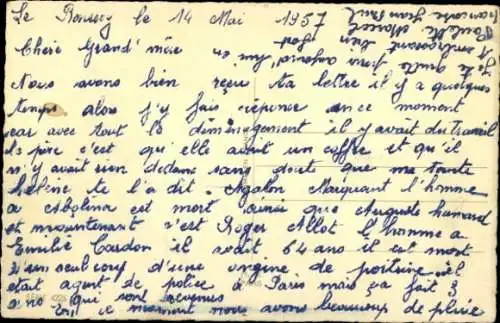 Le Ronssoy le 14 Mai 1957
Chère Grand'mère
Nous avons bien reçu ta lettre il y a quelques
temps alors j'y fais réponse en ce moment
car avec tout le déménagement il y avait du travail
père c'est qu'elle avait un coffre et qu'il
n'y avait rien dedans sans doute que ma tante
Hélène te l'a dit. Agalon Marquant l'homme
a est mort ainsi que Auguste
et maintenant c'est Roger Allot l'homme a
Emilie Cardon il avait 64 ans il est mort
d'un seul coup d'une angine de poitrine il
était agent de police à Paris mais ça fait 3
ans qui sont revenus
En ce moment nous avons beaucoup de pluie
Je te quitte
en bien fort
Paulette Marcel